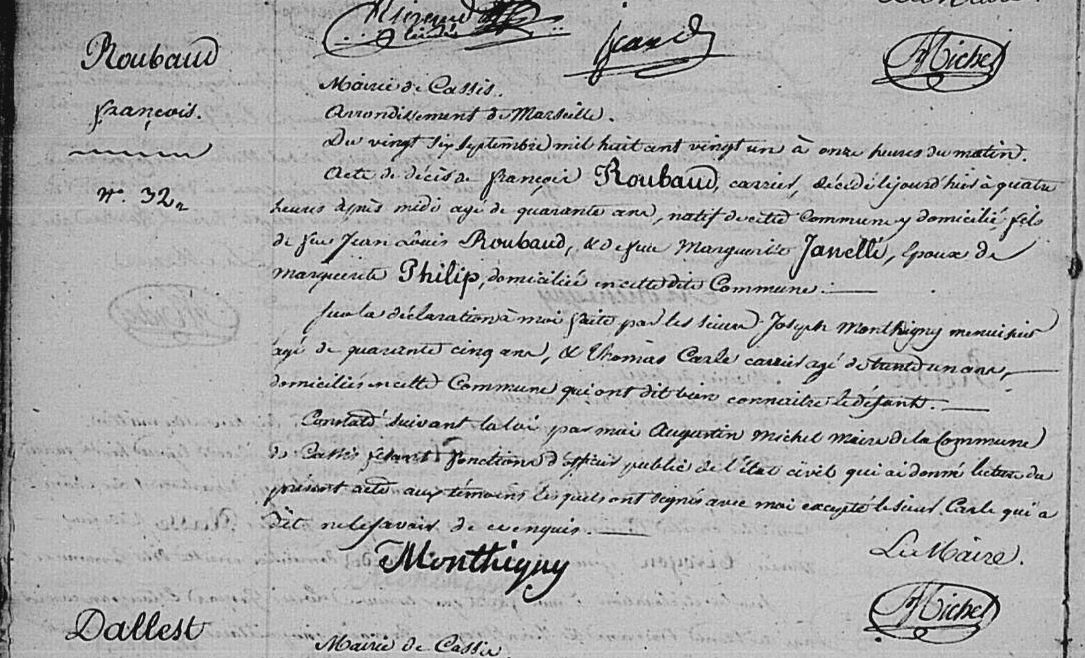 Roubaud
françois.
n.° 32
Mairie de Cassis.
Arrondissement de Marseille.
Du vingt six septembre mil huit cent vingt un à onze heures du matin.
Acte de décès de françois Roubaud, carrier, décédé le jour d'hier à quatre
heures après midi agé de quarante ans, natif de cette Commune y domicilié, fils
de feu Jean Louis Roubaud, & de feue Marguerite Janelle, Epoux de
marguerite Philip, domiciliée en cette dite Commune.
sur la déclaration à moi faite par les sieurs Joseph Monthigny menuisier
agé de quarante cinq ans, & Thomas Carle carrier agé de trente un ans,
domiciliés en cette Commune qui ont dit bien connaitre le défunt.
Constaté suivant la loi par moi Augustin Michel Maire de la Commune
de Cassis fesant fonctions d'officier public de l'état civil qui ai donné lecture du
présent acte aux témoins lesquels ont signés avec moi excepté le sieur Carle qui a
dit ne le savoir de ce enquis.
Le Maire.
Monthigny
Michel
Dallest
Mairie de Cassis.
Michel